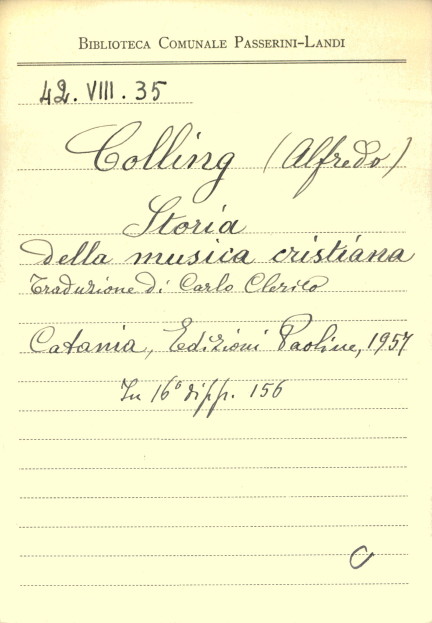 BIBLIOTECA COMUNALE PASSERINI-LANDI
42. VIII. 35
Colling (Alfredo)
Storia
della musica cristiana
Traduzione di Carlo Clerico
Catania, Edizioni Paoline, 1957
In 16° di pp. 156
C